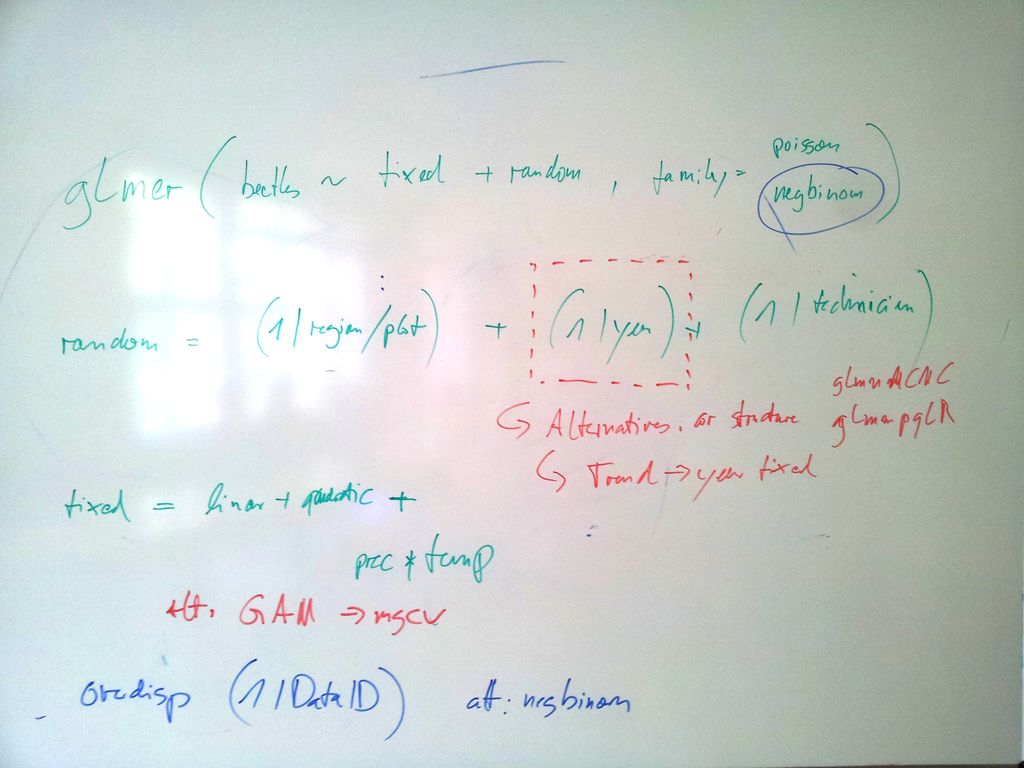 poisson
glmer ( beetles ~ fixed + random , family = negbinom )
random = (1 | region/plot) + (1 | year) + (1 | technician)
glmmMCMC
↳ Alternatives. cor structure glmmpqlR
↳ Trend → year fixed
fixed = linear + quadratic +
prec * temp
alt. GAM → mgcv
overdisp (1 | DataID) alt: negbinom